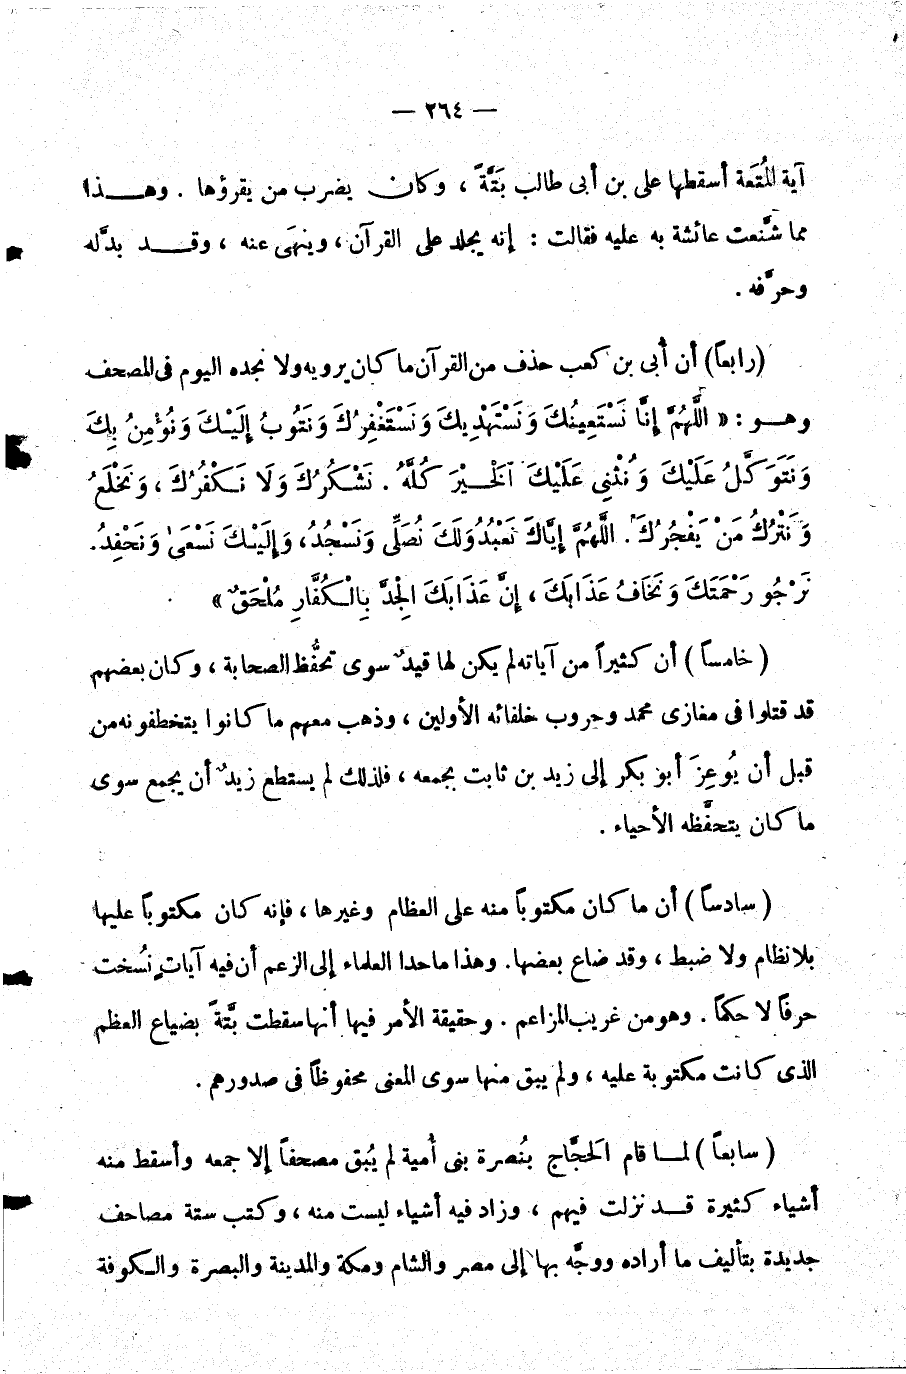 — ٢٦٤ —
آية المُتعَة أسقطها على بن أبى طالب بَتَّةً ، وكان يضرب من يقرؤها . وهــذا
مما شنَّعت عائشة به عليه فقالت : إنه يجلد على القرآن ، وينهَى عنه ، وقــد بدَّله
وحرَّفه .
(رابعاً) أن أبى بن كعب حذف من القرآن ما كان يرويه ولا نجده اليوم فى المصحف
وهــو : « اللَّهُمَّ إِنَّا نَسْتَعِينُكَ وَنَسْتَهْدِيكَ وَنَسْتَغْفِرُكَ وَنَتُوبُ إِلَيْكَ وَنُؤْمِنُ بِكَ
وَنَتَوَكَّلُ عَلَيْكَ وَنُثْنِى عَلَيْكَ الْخَيْرَ كُلَّهُ . نَشْكُرُكَ وَلَا نَكْفُرُكَ ، وَنَخْلَعُ
وَنَتْرُكُ مَنْ يَفْجُرُكَ . اللَّهُمَّ إِيَّاكَ نَعْبُدُ وَلَكَ نُصَلِّى وَنَسْجُدُ، وَإِلَيْكَ نَسْعَىٰ وَنَحْفِدُ.
نَرْجُو رَحْمَتَكَ وَنَخَافُ عَذَابَكَ ، إِنَّ عَذَابَكَ الْجِدَّ بِالْكُفَّارِ مُلْحَقٌ »
( خامساً ) أن كثيراً من آياته لم يكن لها قيدٌ سوى تحفُّظ الصحابة ، وكان بعضهم
قد قتلوا فى مغازى محمد وحروب خلفائه الأولين ، وذهب معهم ما كانوا يتخطفونه من
قبل أن يُوعِزَ أبو بكر إلى زيد بن ثابت بجمعه ، فلذلك لم يستطع زيدٌ أن يجمع سوى
ما كان يتحفَّظه الأحياء .
( سادساً ) أن ما كان مكتوباً منه على العظام وغيرها ، فإنه كان مكتوباً عليها
بلا نظام ولا ضبط ، وقد ضاع بعضها. وهذا ما حدا العلماء إلى الزعم أن فيه آيات نُسخت
حرفاً لا حكماً . وهو من غريب المزاعم . وحقيقة الأمر فيها أنها سقطت بتَّةً بضياع العظم
الذى كانت مكتوبة عليه ، ولم يبق منها سوى المعنى محفوظاً فى صدورهم .
( سابعاً ) لمــا قام الحَجَّاج بنُصرة بنى أمية لم يُبق مصحفاً إلا جمعه وأسقط منه
أشياء كثيرة قــد نزلت فيهم ، وزاد فيه أشياء ليست منه ، وكتب ستة مصاحف
جديدة بتأليف ما أراده ووجَّه بها إلى مصر والشام ومكة والمدينة والبصرة والكوفة